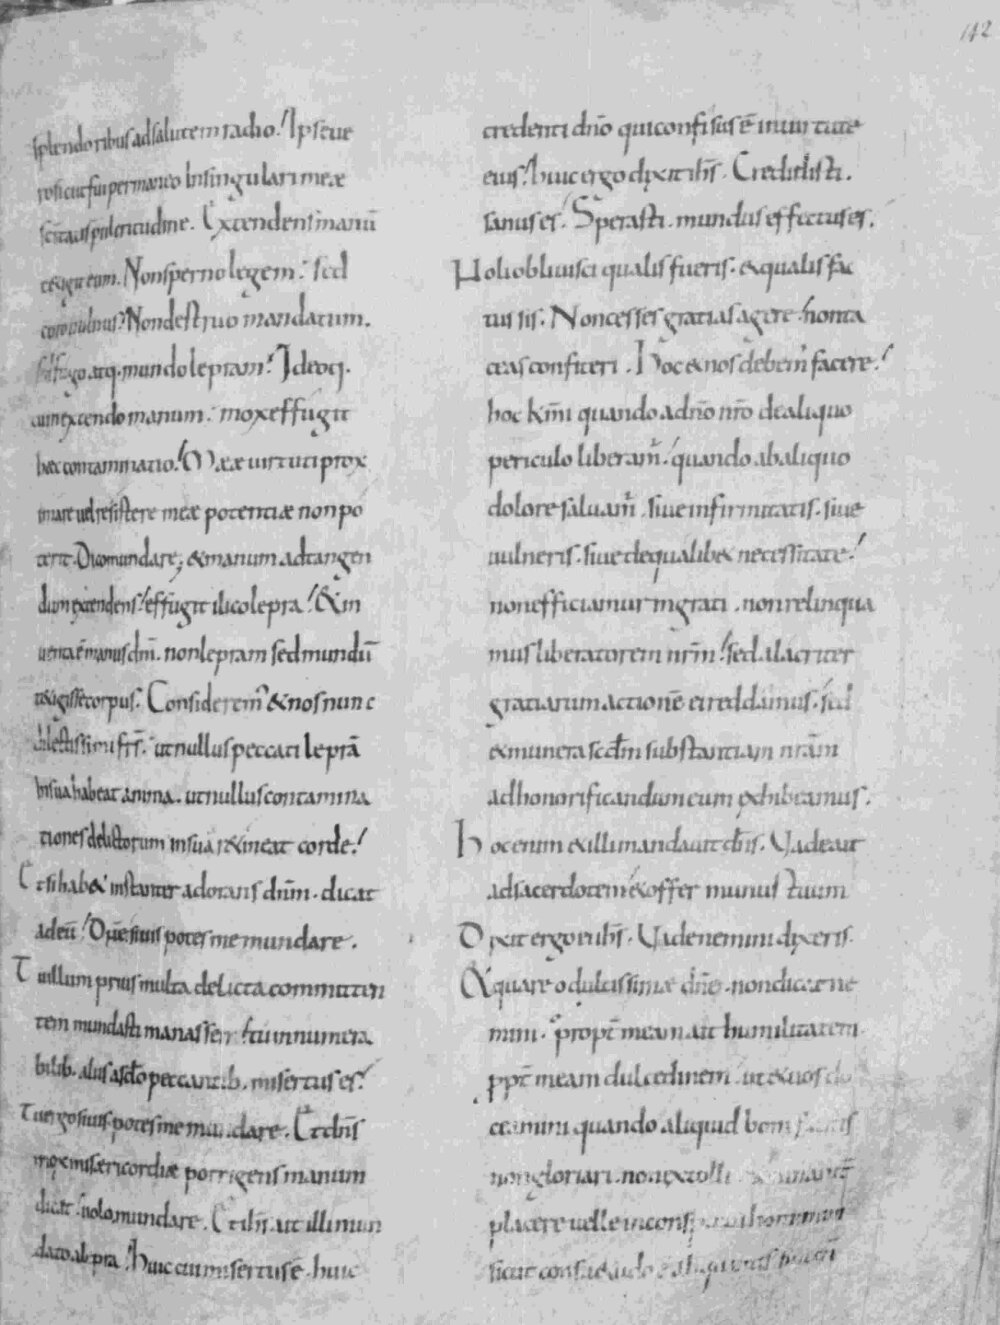 142
splendoribus ad salutem radio. Ipse ue
ro sicut fui permaneo In singulari meæ
scītatis pulcritudine. Extendens manū
tetigit eum. Non sperno legem. sed
curo uulnus. Non destruo mandatum.
sed fugo atq. mundo lepram. Ideoq.
cum extendo manum. mox effugit
hæc contaminatio. Meæ uirtuti prox
imare uel resistere meæ potentiæ non po
terit. Dico mundare, & manum ad tangen
dum extendens. effugit ilico lepra. & in
uenta ē manus dn̄i. non lepram sed mundū
tetigisse corpus. Considerem̄ & nos nunc
dilectissimi frs̄. ut nullus peccati leprā
In sua habeat anima. ut nullus contamina
tiones delictorum in sua retineat corde.
Et si hab& instanter adorans dn̄m. dicat
ad eū. Dn̄e si uis potes me mundare.
Tu illum prius multa delicta committen
tem mundasti manassen. tu innumera
bilib. aliis a sc̄lo peccantib. misertus es.
Tu ergo si uis potes me mundare. Et dn̄s
mox misericordiæ porrigens manum
dicat. uolo mundare. Et ihs̄ ait illi mun
dato a lepra. huic cui misertus ē. huic
credenti dn̄o qui confisus ē in uirtute
eius. huic ergo dixit ihs̄. Credidisti.
sanus es. Sperasti. mundus effectus es.
Noli obliuisci qualis fueris. & qualis fac
tus sis. Non cesses gratias agere. non ta
ceas confiteri. Hoc & nos debem̄ facere.
hoc km̄i quando a dn̄o nr̄o de aliquo
periculo liberam̄. quando ab aliquo
dolore saluam̄. siue infirmitatis. siue
uulneris. siue de qualib& necessitate.
non efficiamur ingrati. non relinqua
mus liberatorem nrm̄. sed alacriter
gratiarum actionē ei reddamus. sed
& munera scdm̄ substantiam nrām
ad honorificandum eum exhibeamus.
Hoc enim & illi mandauit dn̄s. Uade ait
ad sacerdotem & offer munus tuum
Dixit ergo ei ihs̄. Uade nemini dixeris.
& quare o dulcissime dn̄e. non dicat ne
mini. propt̄ meam ait humilitatem
ppt̄ meam dulcedinem. ut & uos do
ceamini quando aliquid boni facitis
non gloriari. non extolli
placere uelle in conspectu hominum
sicut consuetudo